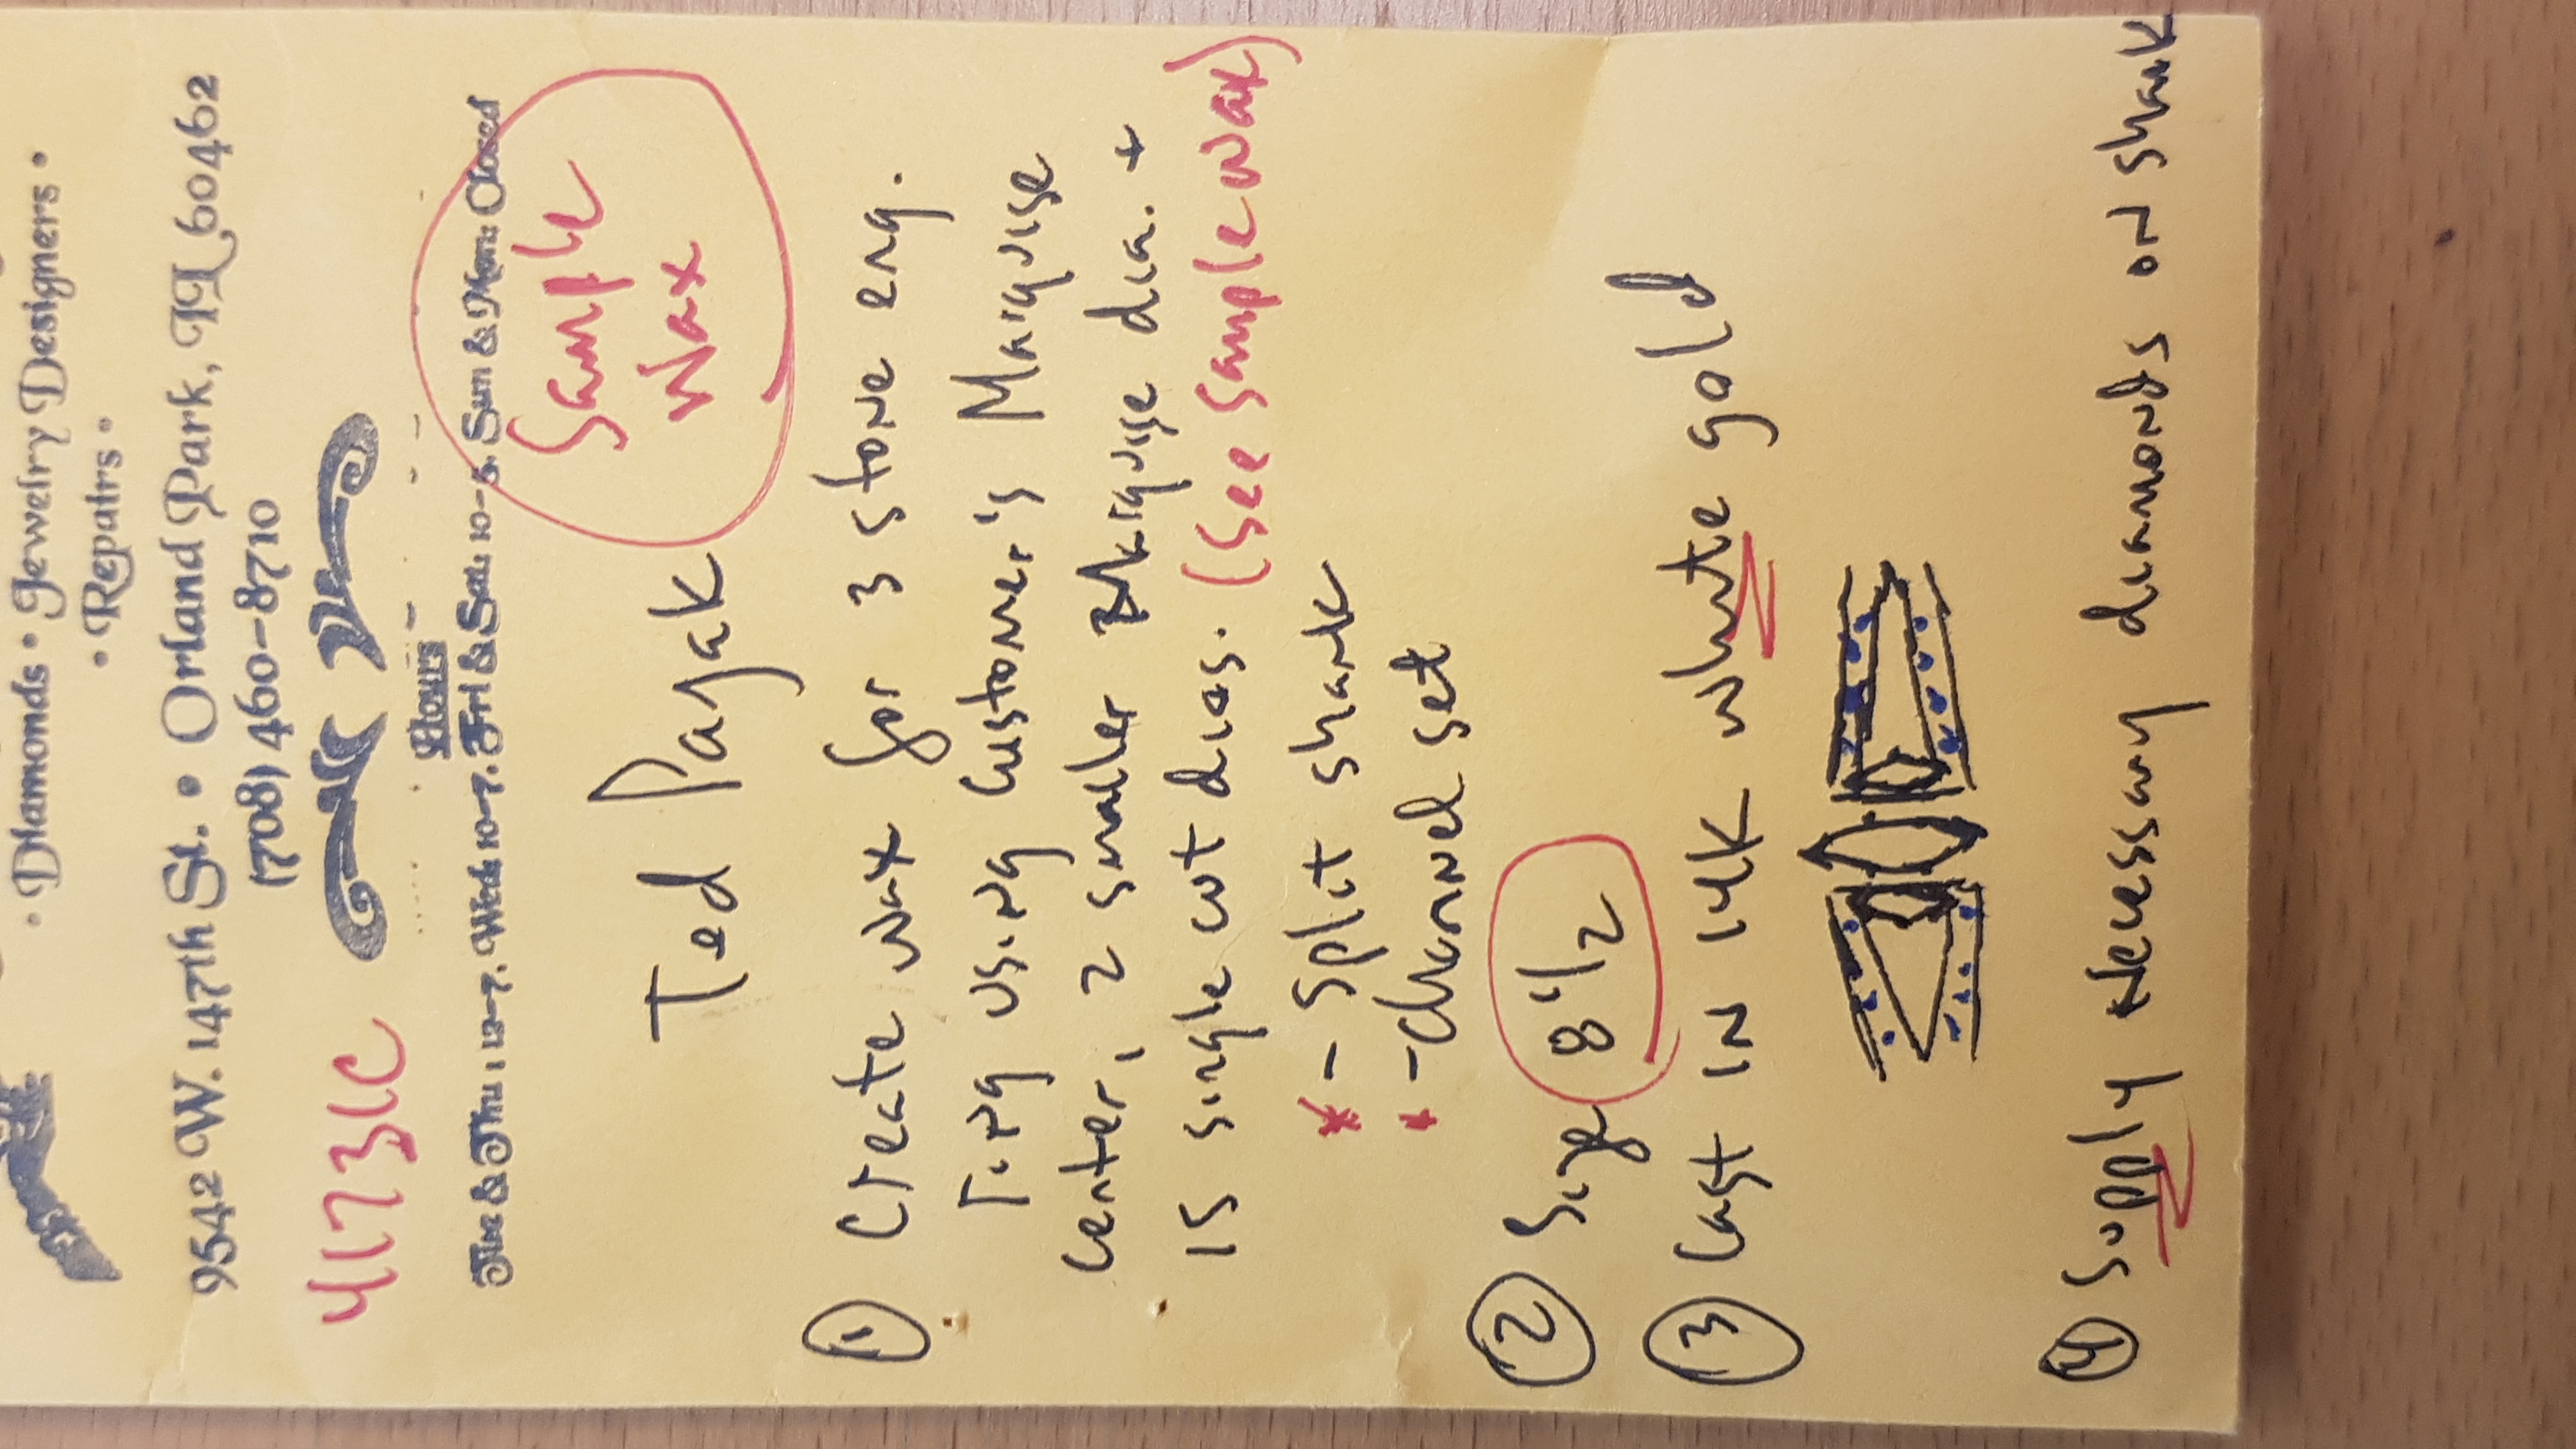 • Diamonds • Jewelry Designers •
• Repairs •
9542 W. 147th St. • Orland Park, IL 60462
(708) 460-8710
41731C
Hours
Tue & Thu: 12-7, Wed: 10-7, Fri & Sat: 10-5, Sun & Mon: Closed
Sample
Wax
Ted Pajak
① Create wax for 3 stone eng.
ring using Customer's Marquise
center, 2 smaller Marquise dia. +
15 single cut dias. (See Sample Wax)
* - Split shank
* - Channel set
② Size 8 1/2
③ Cast in 14K white gold
④ Supply necessary diamonds on shank